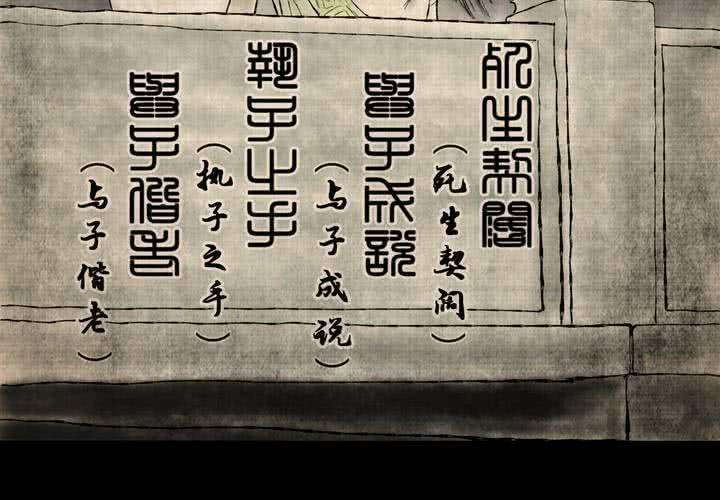 死生契闊
（死生契阔）
與子成說
（与子成说）
執子之手
（执子之手）
與子偕老
（与子偕老）